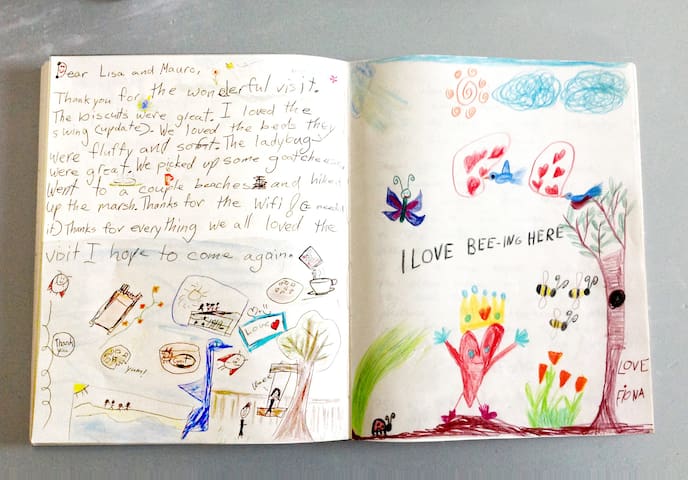 Dear Lisa and Mauro,
Thankyou for the wonderful visit.
The biscuits were great. I loved the
swing (update). We loved the beds they
were fluffy and soft. The ladybugs
were great. We picked up some goatcheese,
went to a couple beaches and hiked
up the marsh. Thanks for the Wifi &
it) Thanks for everything we all loved the
visit I hope to come again.
Thank you
yummy
LOVE
I LOVE BEE-ING HERE
LOVE
FIONA